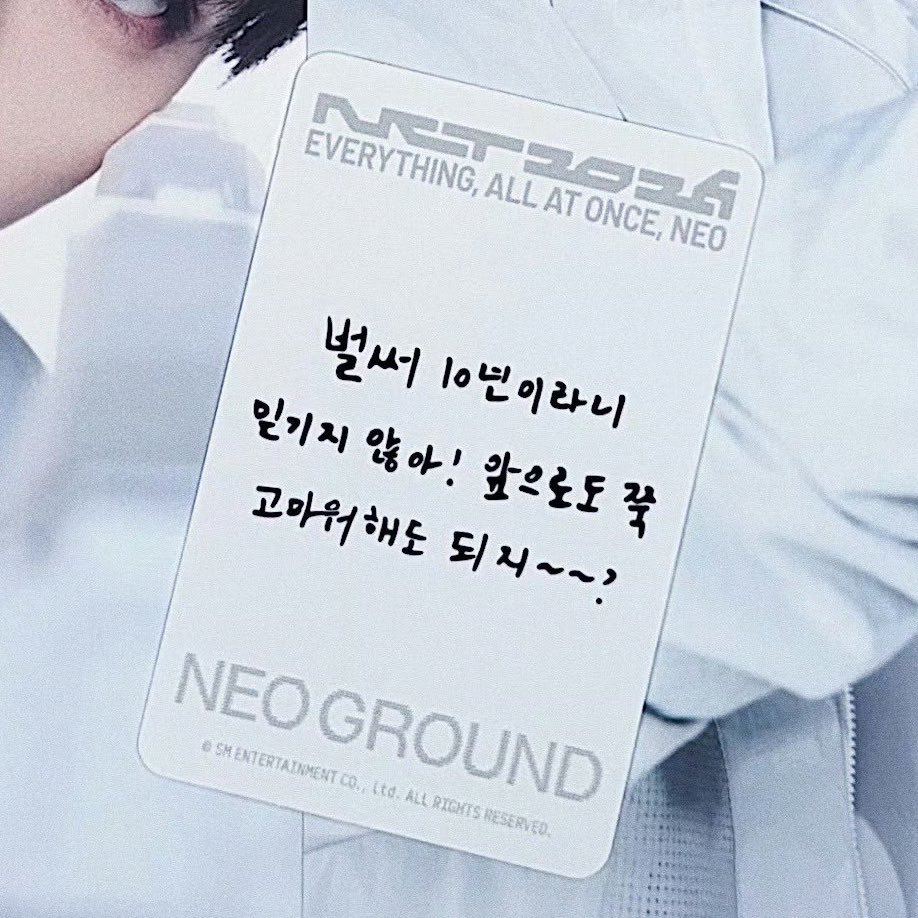 NCT 2026
EVERYTHING, ALL AT ONCE, NEO
벌써 10년이라니
믿기지 않아! 앞으로도 쭉
고마워해도 되지~~?
NEO GROUND
© SM ENTERTAINMENT CO., Ltd. ALL RIGHTS RESERVED.